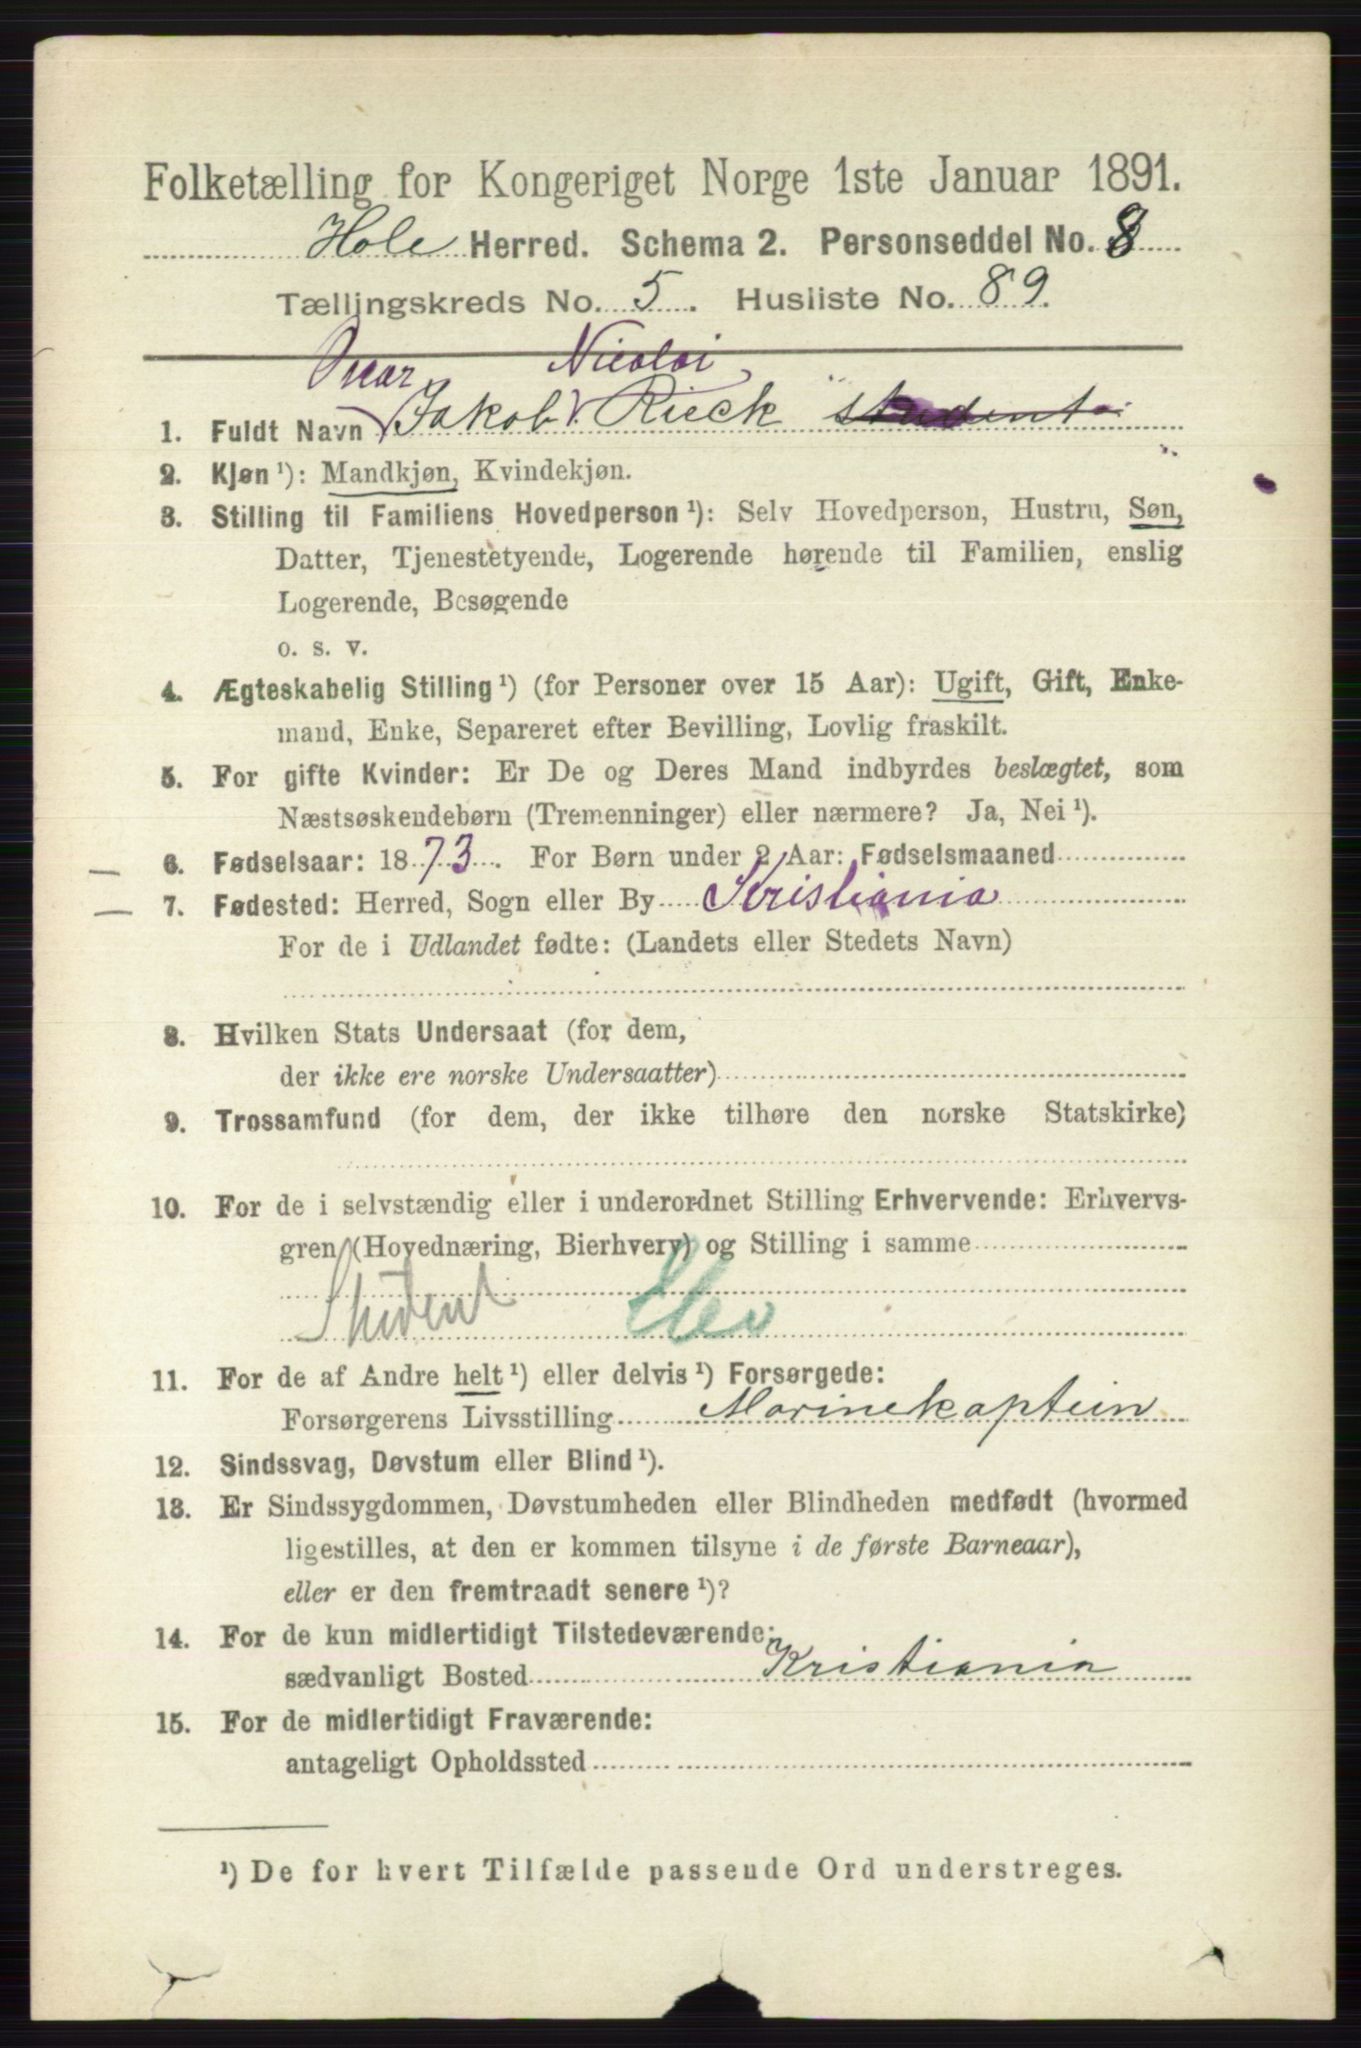 Folketælling for Kongeriget Norge 1ste Januar 1891.
Hole Herred. Schema 2. Personseddel No. 8
Tællingskreds No. 5. Husliste No. 89.
Oscar Nicolai
1. Fuldt Navn Jakob Rieck student
2. Kjøn ¹): Mandkjøn, Kvindekjøn.
3. Stilling til Familiens Hovedperson ¹): Selv Hovedperson, Hustru, Søn,
Datter, Tjenestetyende, Logerende hørende til Familien, enslig
Logerende, Besøgende
o. s. v.
4. Ægteskabelig Stilling ¹) (for Personer over 15 Aar): Ugift, Gift, Enke-
mand, Enke, Separeret efter Bevilling, Lovlig fraskilt.
5. For gifte Kvinder: Er De og Deres Mand indbyrdes beslægtet, som
Næstsøskendebørn (Tremenninger) eller nærmere? Ja, Nei ¹).
6. Fødselsaar: 1873. For Børn under 2 Aar: Fødselsmaaned
7. Fødested: Herred, Sogn eller By Kristiania
For de i Udlandet fødte: (Landets eller Stedets Navn)
8. Hvilken Stats Undersaat (for dem,
der ikke ere norske Undersaatter)
9. Trossamfund (for dem, der ikke tilhøre den norske Statskirke)
10. For de i selvstændig eller i underordnet Stilling Erhvervende: Erhvervs-
gren (Hovednæring, Bierhverv) og Stilling i samme
Student Elev
11. For de af Andre helt ¹) eller delvis ¹) Forsørgede:
Forsørgerens Livsstilling Marinekaptein
12. Sindssvag, Døvstum eller Blind ¹).
13. Er Sindssygdommen, Døvstumheden eller Blindheden medfødt (hvormed
ligestilles, at den er kommen tilsyne i de første Barneaar),
eller er den fremtraadt senere ¹)?
14. For de kun midlertidigt Tilstedeværende:
sædvanligt Bosted Kristiania
15. For de midlertidigt Fraværende:
antageligt Opholdssted
¹) De for hvert Tilfælde passende Ord understreges.